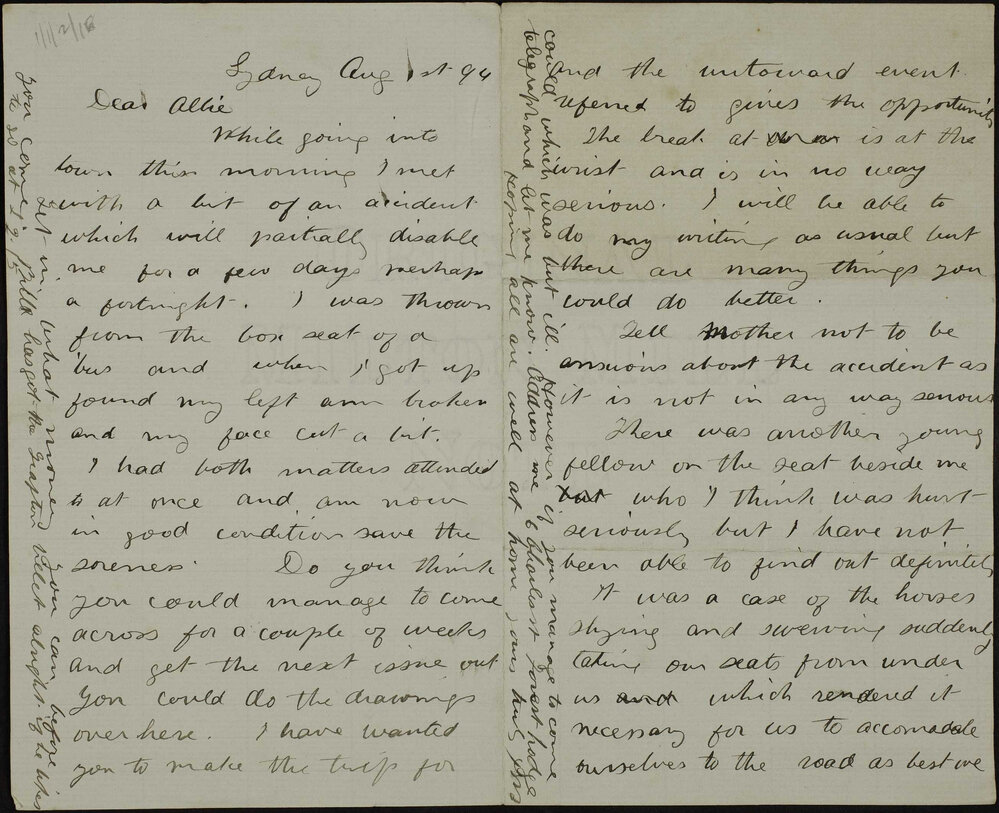 Sydney Aug 1st 94
Dear Allie
While going into
town this morning I met
with a bit of an accident
which will partially disable
me for a few days perhap
a fortnight. I was thrown
from the box seat of a
'bus and when I got up
found my left arm broken
and my face cut a bit.
I had both matters attended
to at once and am now
in good condition save the
soreness. Do you think
you could manage to come
across for a couple of weeks
and get the next issue out
You could do the drawings
over here. I have wanted
you to make the trip for
and the untoward event
referred to gives the opportunity
The break at is at the
wrist and is in no way
serious. I will be able to
do my writing as usual but
there are many things you
could do better.
Tell Mother not to be
anxious about the accident as
it is not in any way serious
There was another young
fellow on the seat beside me
but who I think was hurt
seriously but I have not
been able to find out definitely
It was a case of the horses
shying and swerving suddenly
taking our seats from under
us and which rendered it
necessary for us to accomadate
ourselves to the road as best we
could which was but ill. However if you manage to come
telegraph and let me know. Address me 6 St Forest Lodge
Hoping all are well at home yours truly
Get in what money you can before
you come, has got the Grafton billet alright. if he likes
to go at it.